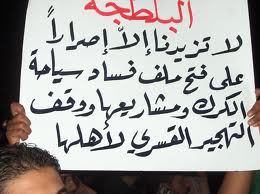 البلطجة
لا تزيدنا إلا إصراراً
على فتح ملف فساد سياحة
الكرك ومشاريعها ووقف
التهجير القسري لأهلها